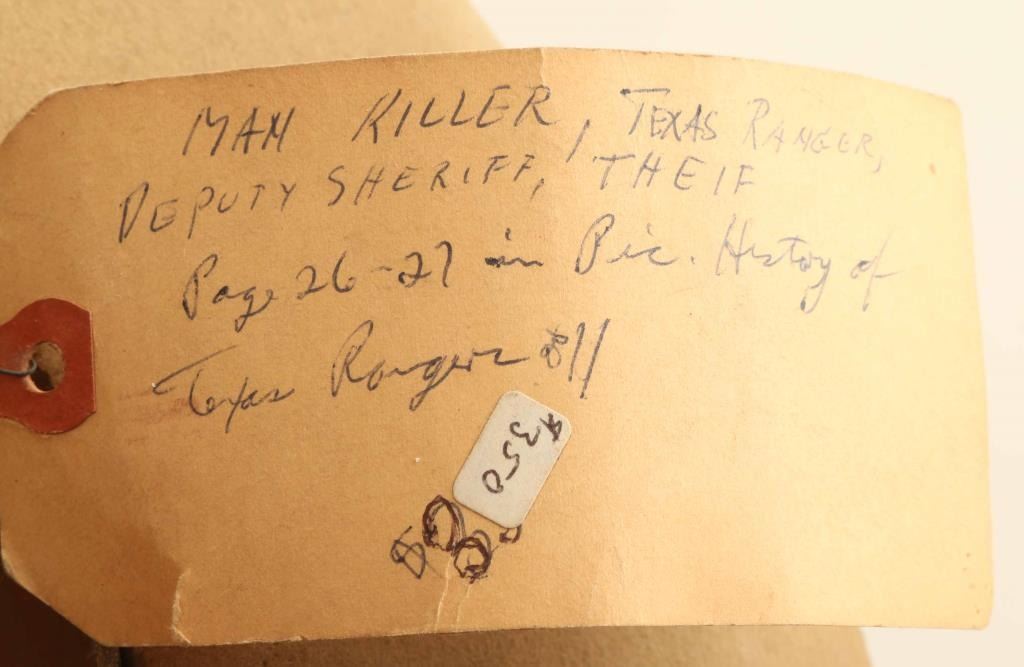 MAN KILLER, TEXAS RANGER,
DEPUTY SHERIFF, THEIF
Page 26-27 in Pic. History of
Texas Rangers
$350
$